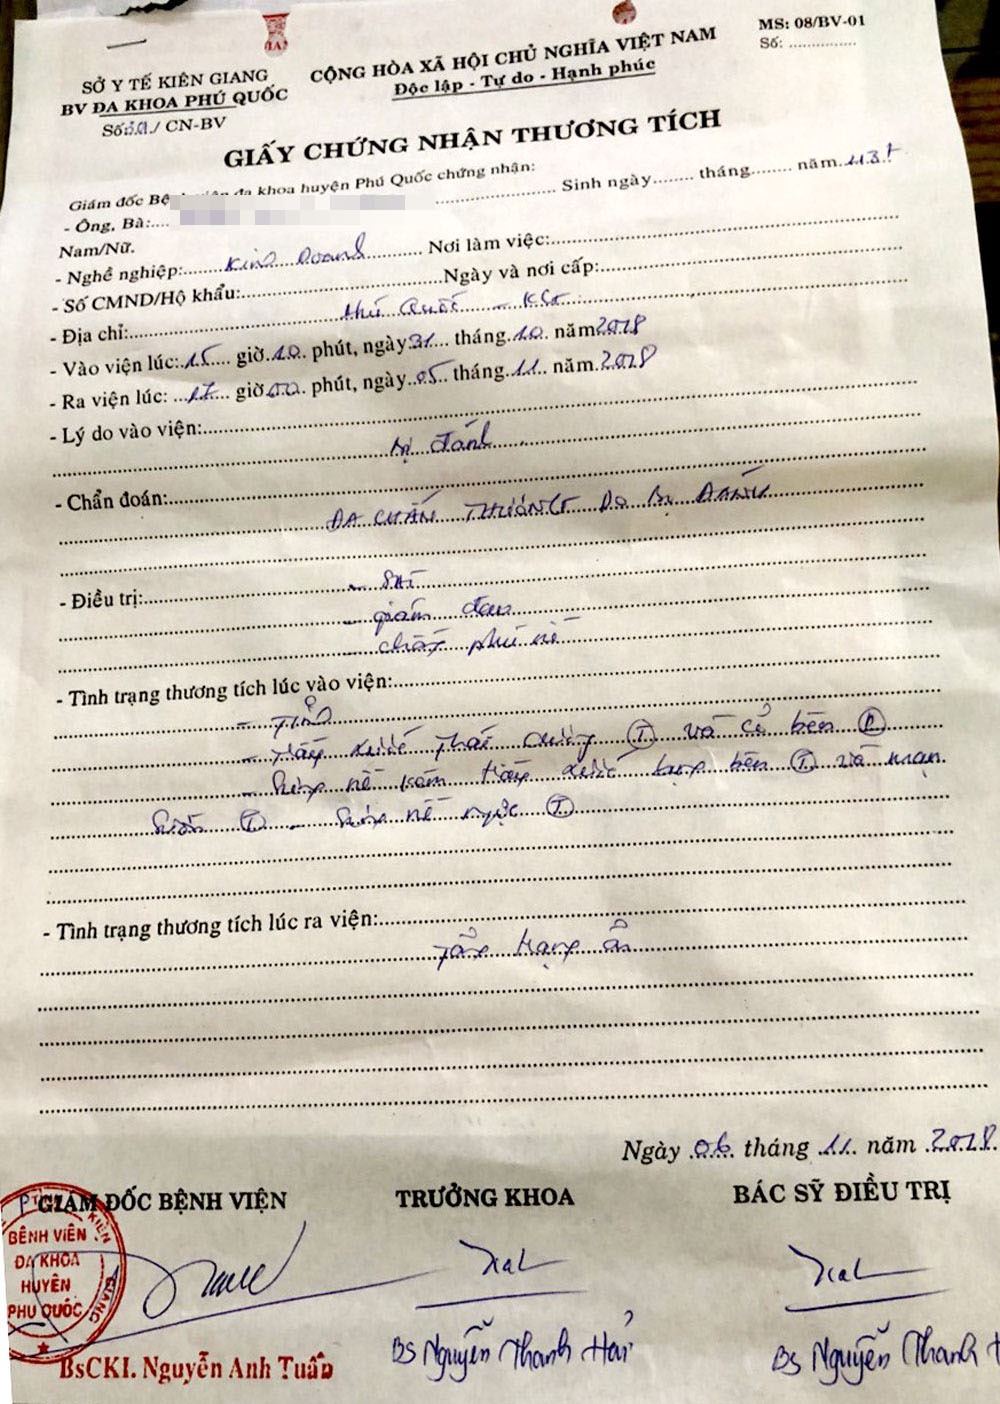 MS: 08/BV-01
Số: ................
SỞ Y TẾ KIÊN GIANG
BV ĐA KHOA PHÚ QUỐC
Số: / CN-BV
CỘNG HÒA XÃ HỘI CHỦ NGHĨA VIỆT NAM
Độc lập - Tự do - Hạnh phúc
GIẤY CHỨNG NHẬN THƯƠNG TÍCH
Giám đốc Bệnh viện đa khoa huyện Phú Quốc chứng nhận:
- Ông, Bà:.... Sinh ngày........ tháng........ năm
Nam/Nữ.
- Nghề nghiệp: Kinh Doanh Nơi làm việc:
- Số CMND/Hộ khẩu: Ngày và nơi cấp:
- Địa chỉ: Phú Quốc - KG
- Vào viện lúc: 15 giờ 10 phút, ngày 31 tháng 10 năm 2018
- Ra viện lúc: 17 giờ 00 phút, ngày 05 tháng 11 năm 2018
- Lý do vào viện:
Bị đánh
- Chẩn đoán:
ĐA CHẤN THƯƠNG DO BỊ ĐÁNH
- Điều trị:
giảm đau
chống phù nề
- Tình trạng thương tích lúc vào viện:
- Tỉnh
- Trầy xước thái dương (T) và cổ bên (P)
- Sưng nề kèm trầy xước lưng bên (T) và mạn
sườn (T) - Sưng nề ngực (T)
- Tình trạng thương tích lúc ra viện:
Tổng trạng ổn
Ngày 06 tháng 11 năm 2018
P. GIÁM ĐỐC BỆNH VIỆN
TRƯỞNG KHOA
BÁC SỸ ĐIỀU TRỊ
BỆNH VIỆN
ĐA KHOA
HUYỆN
PHÚ QUỐC
KIÊN GIANG
BsCKI. Nguyễn Anh Tuấn
BS Nguyễn Thanh Hải
BS Nguyễn Thanh H